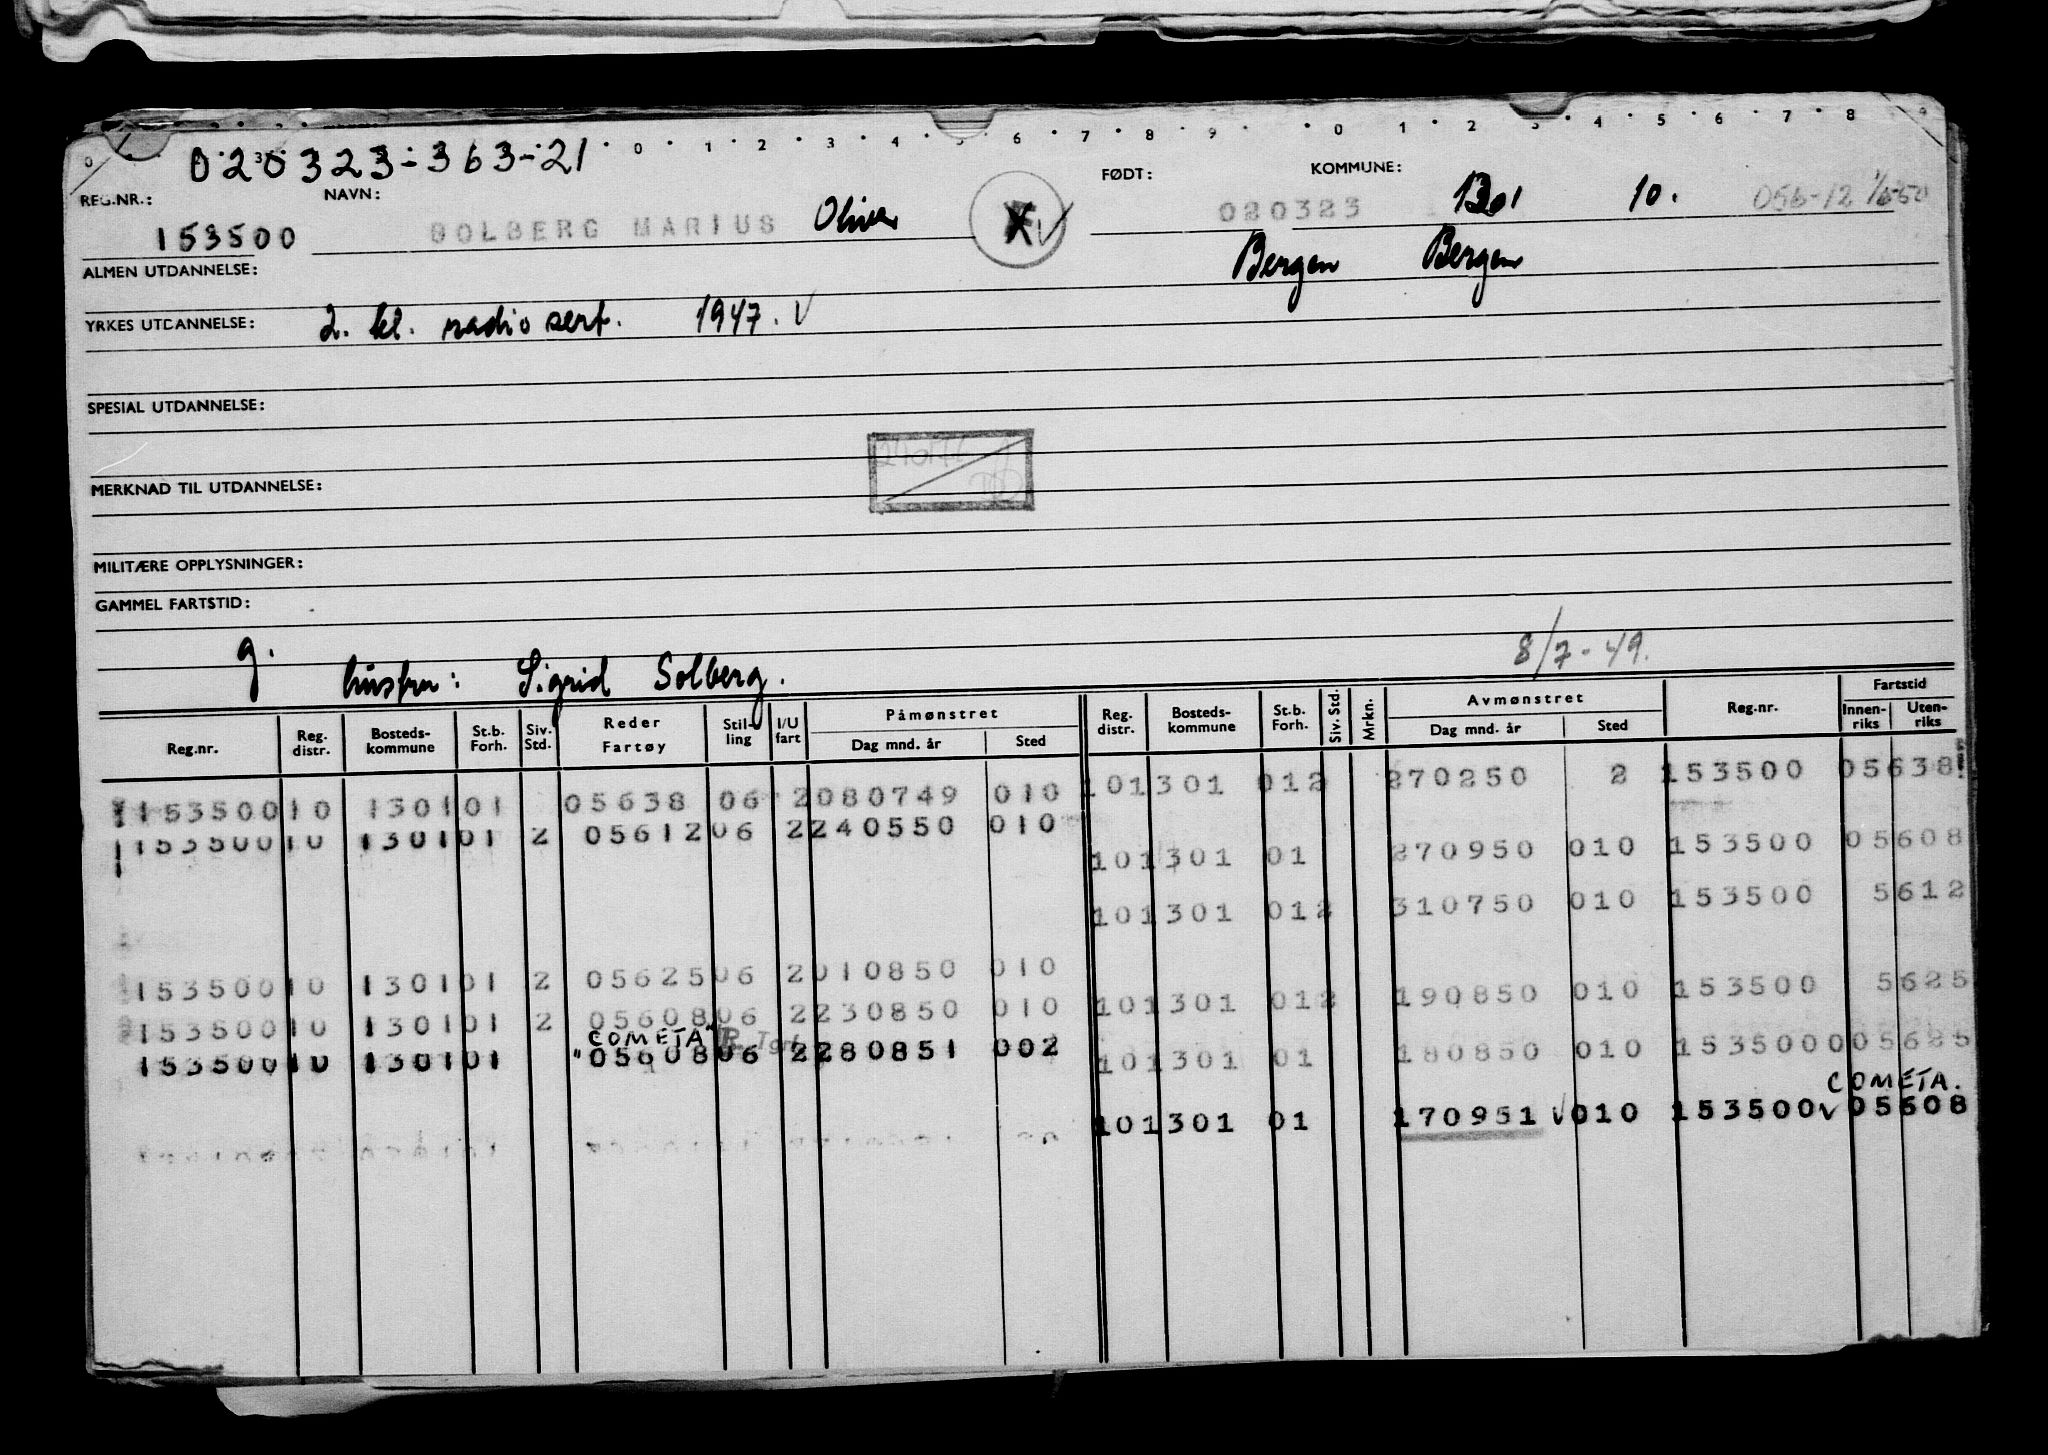 0 2 0 3 2 3 - 3 6 3 - 2 1
REG.NR.: NAVN: FØDT: KOMMUNE:
153500 SOLBERG MARIUS Oliver 020323 1301 10. 056-12 1/6-50
Bergen Bergen
ALMEN UTDANNELSE:
YRKES UTDANNELSE: 2. kl. radio sert. 1947. V
SPESIAL UTDANNELSE:
MERKNAD TIL UTDANNELSE:
MILITÆRE OPPLYSNINGER:
GAMMEL FARTSTID:
g. hustru: Sigrid Solberg. 8/7-49.
Reg.nr. Reg. distr. Bosteds-kommune St.b. Forh. Siv. Std. Reder Fartøy Stil-ling I/U fart Påmønstret Dag mnd. år Sted Reg. distr. Bosteds-kommune St.b. Forh. Siv. Std. Mrkn. Avmønstret Dag mnd. år Sted Reg.nr. Fartstid Innen-riks Uten-riks
153500 10 1301 01 05638 06 2 080749 010 10 1301 012 270250 2 153500 05638
153500 10 1301 01 2 05612 06 2 240550 010
10 1301 01 270950 010 153500 05608
10 1301 012 310750 010 153500 5612
153500 10 1301 01 2 05625 06 2 010850 010
10 1301 012 190850 010 153500 5625
153500 10 1301 01 2 05608 06 2 230850 010
COMETA"
153500 10 1301 01 "05608 06 2 280851 002
10 1301 01 180850 010 153500 005625
COMETA.
10 1301 01 170951 V 010 153500 V 05608